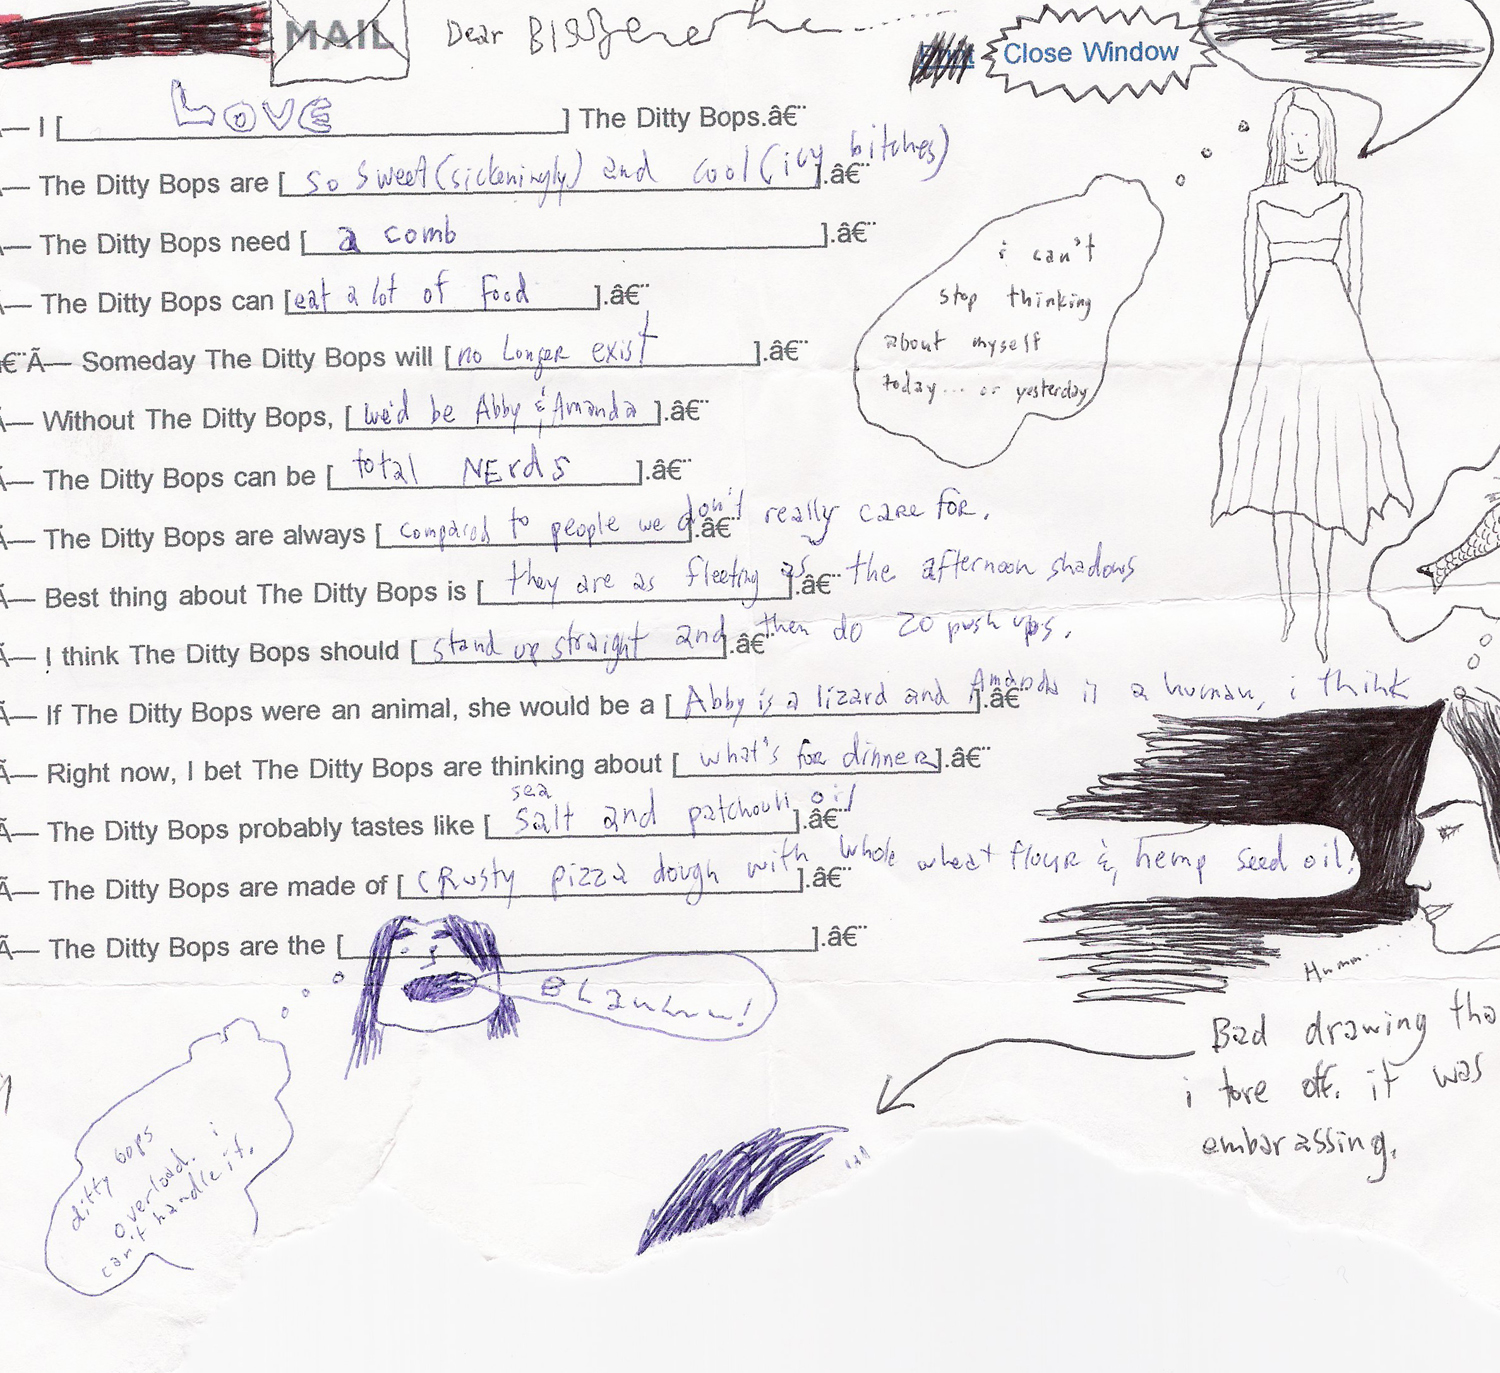 MAIL
Dear
Close Window
Ã— I [ LOVE ] The Ditty Bops.â€¨
Ã— The Ditty Bops are [ so sweet (sickeningly) and cool (icy bitches) ].â€¨
Ã— The Ditty Bops need [ a comb ].â€¨
Ã— The Ditty Bops can [eat a lot of food ].â€¨
€¨Ã— Someday The Ditty Bops will [no longer exist ].â€¨
Ã— Without The Ditty Bops, [ we'd be Abby & Amanda ].â€¨
Ã— The Ditty Bops can be [ total NErdS ].â€¨
Ã— The Ditty Bops are always [ compared to people we don't really care for. ].â€¨
Ã— Best thing about The Ditty Bops is [ they are as fleeting as the afternoon shadows ].â€¨
Ã— I think The Ditty Bops should [ stand up straight and then do 20 push ups. ].â€¨
Ã— If The Ditty Bops were an animal, she would be a [ Abby is a lizard and Amanda is a human, i think ].â€¨
Ã— Right now, I bet The Ditty Bops are thinking about [ what's for dinner ].â€¨
Ã— The Ditty Bops probably tastes like [ sea salt and patchouli oil ].â€¨
Ã— The Ditty Bops are made of [ crusty pizza dough with whole wheat flour & hemp seed oil! ].â€¨
Ã— The Ditty Bops are the [ ].â€¨
i can't
stop thinking
about myself
today... or yesterday
Humm...
BLauhuu!
Bad drawing tha
i tore off. it was
embarassing.
ditty bops
overload. i
can't handle it.